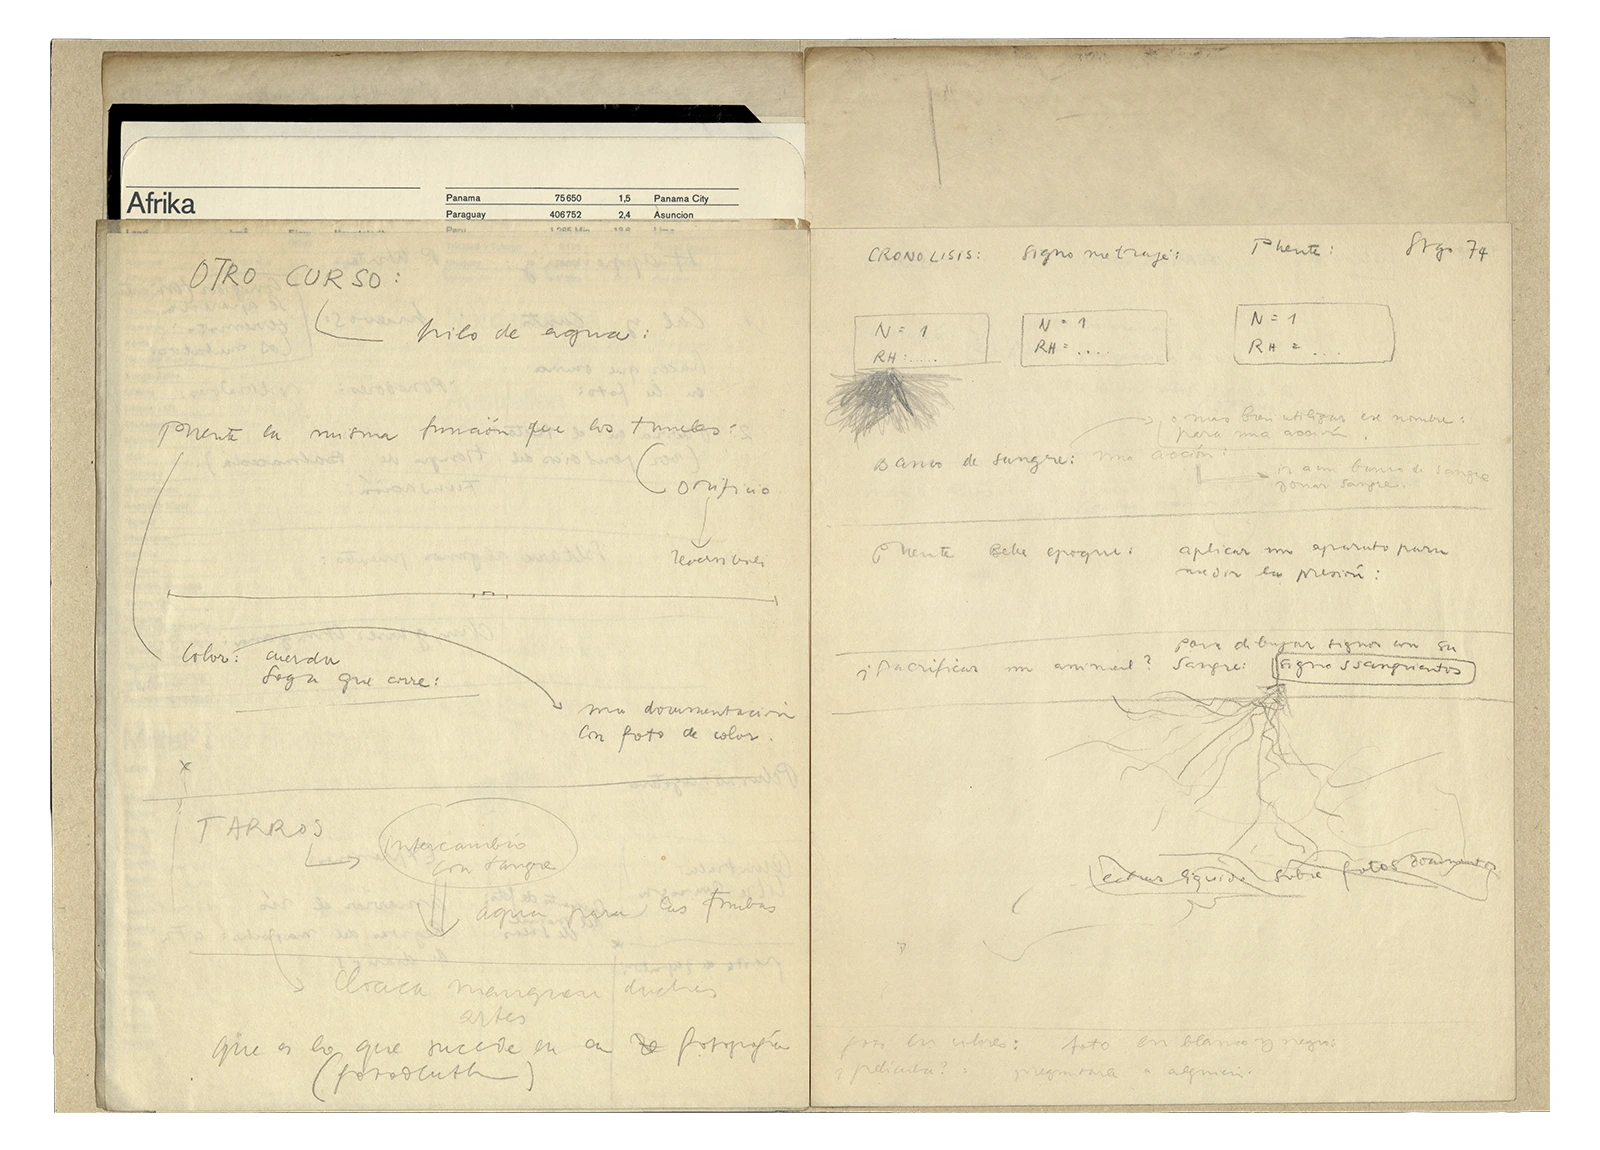 Afrika
Panama 75650 1,5 Panama City
Paraguay 406752 2,4 Asuncion
OTRO CURSO:
hilo de agua:
Phente la misma función que los tuneles:
Orificio
reversibles
Color: cuerda
Soga que corre:
una documentación
con foto de color.
x
TARROS
Intercambio
con sangre
agua para las tumbas
Cloaca manguera duchas
artes
que es lo que sucede en la fotografía
CRONOLISIS: Signo metraje: Phente: Stgo 74
N = 1
RH = ....
N = 1
RH = ....
N = 1
RH = ...
o mas bien utilizar ese nombre:
para una acción.
Banco de sangre: una acción:
ir a un banco de sangre
donar sangre.
Phente Belle epoque: aplicar un aparato para
medir la presión:
para dibujar signos con su
¿Sacrificar un animal? Sangre: signos sangrientos
echar líquido sobre fotos documentos
foto en colores: foto en blanco y negro:
¿película?: preguntarle a alguien.